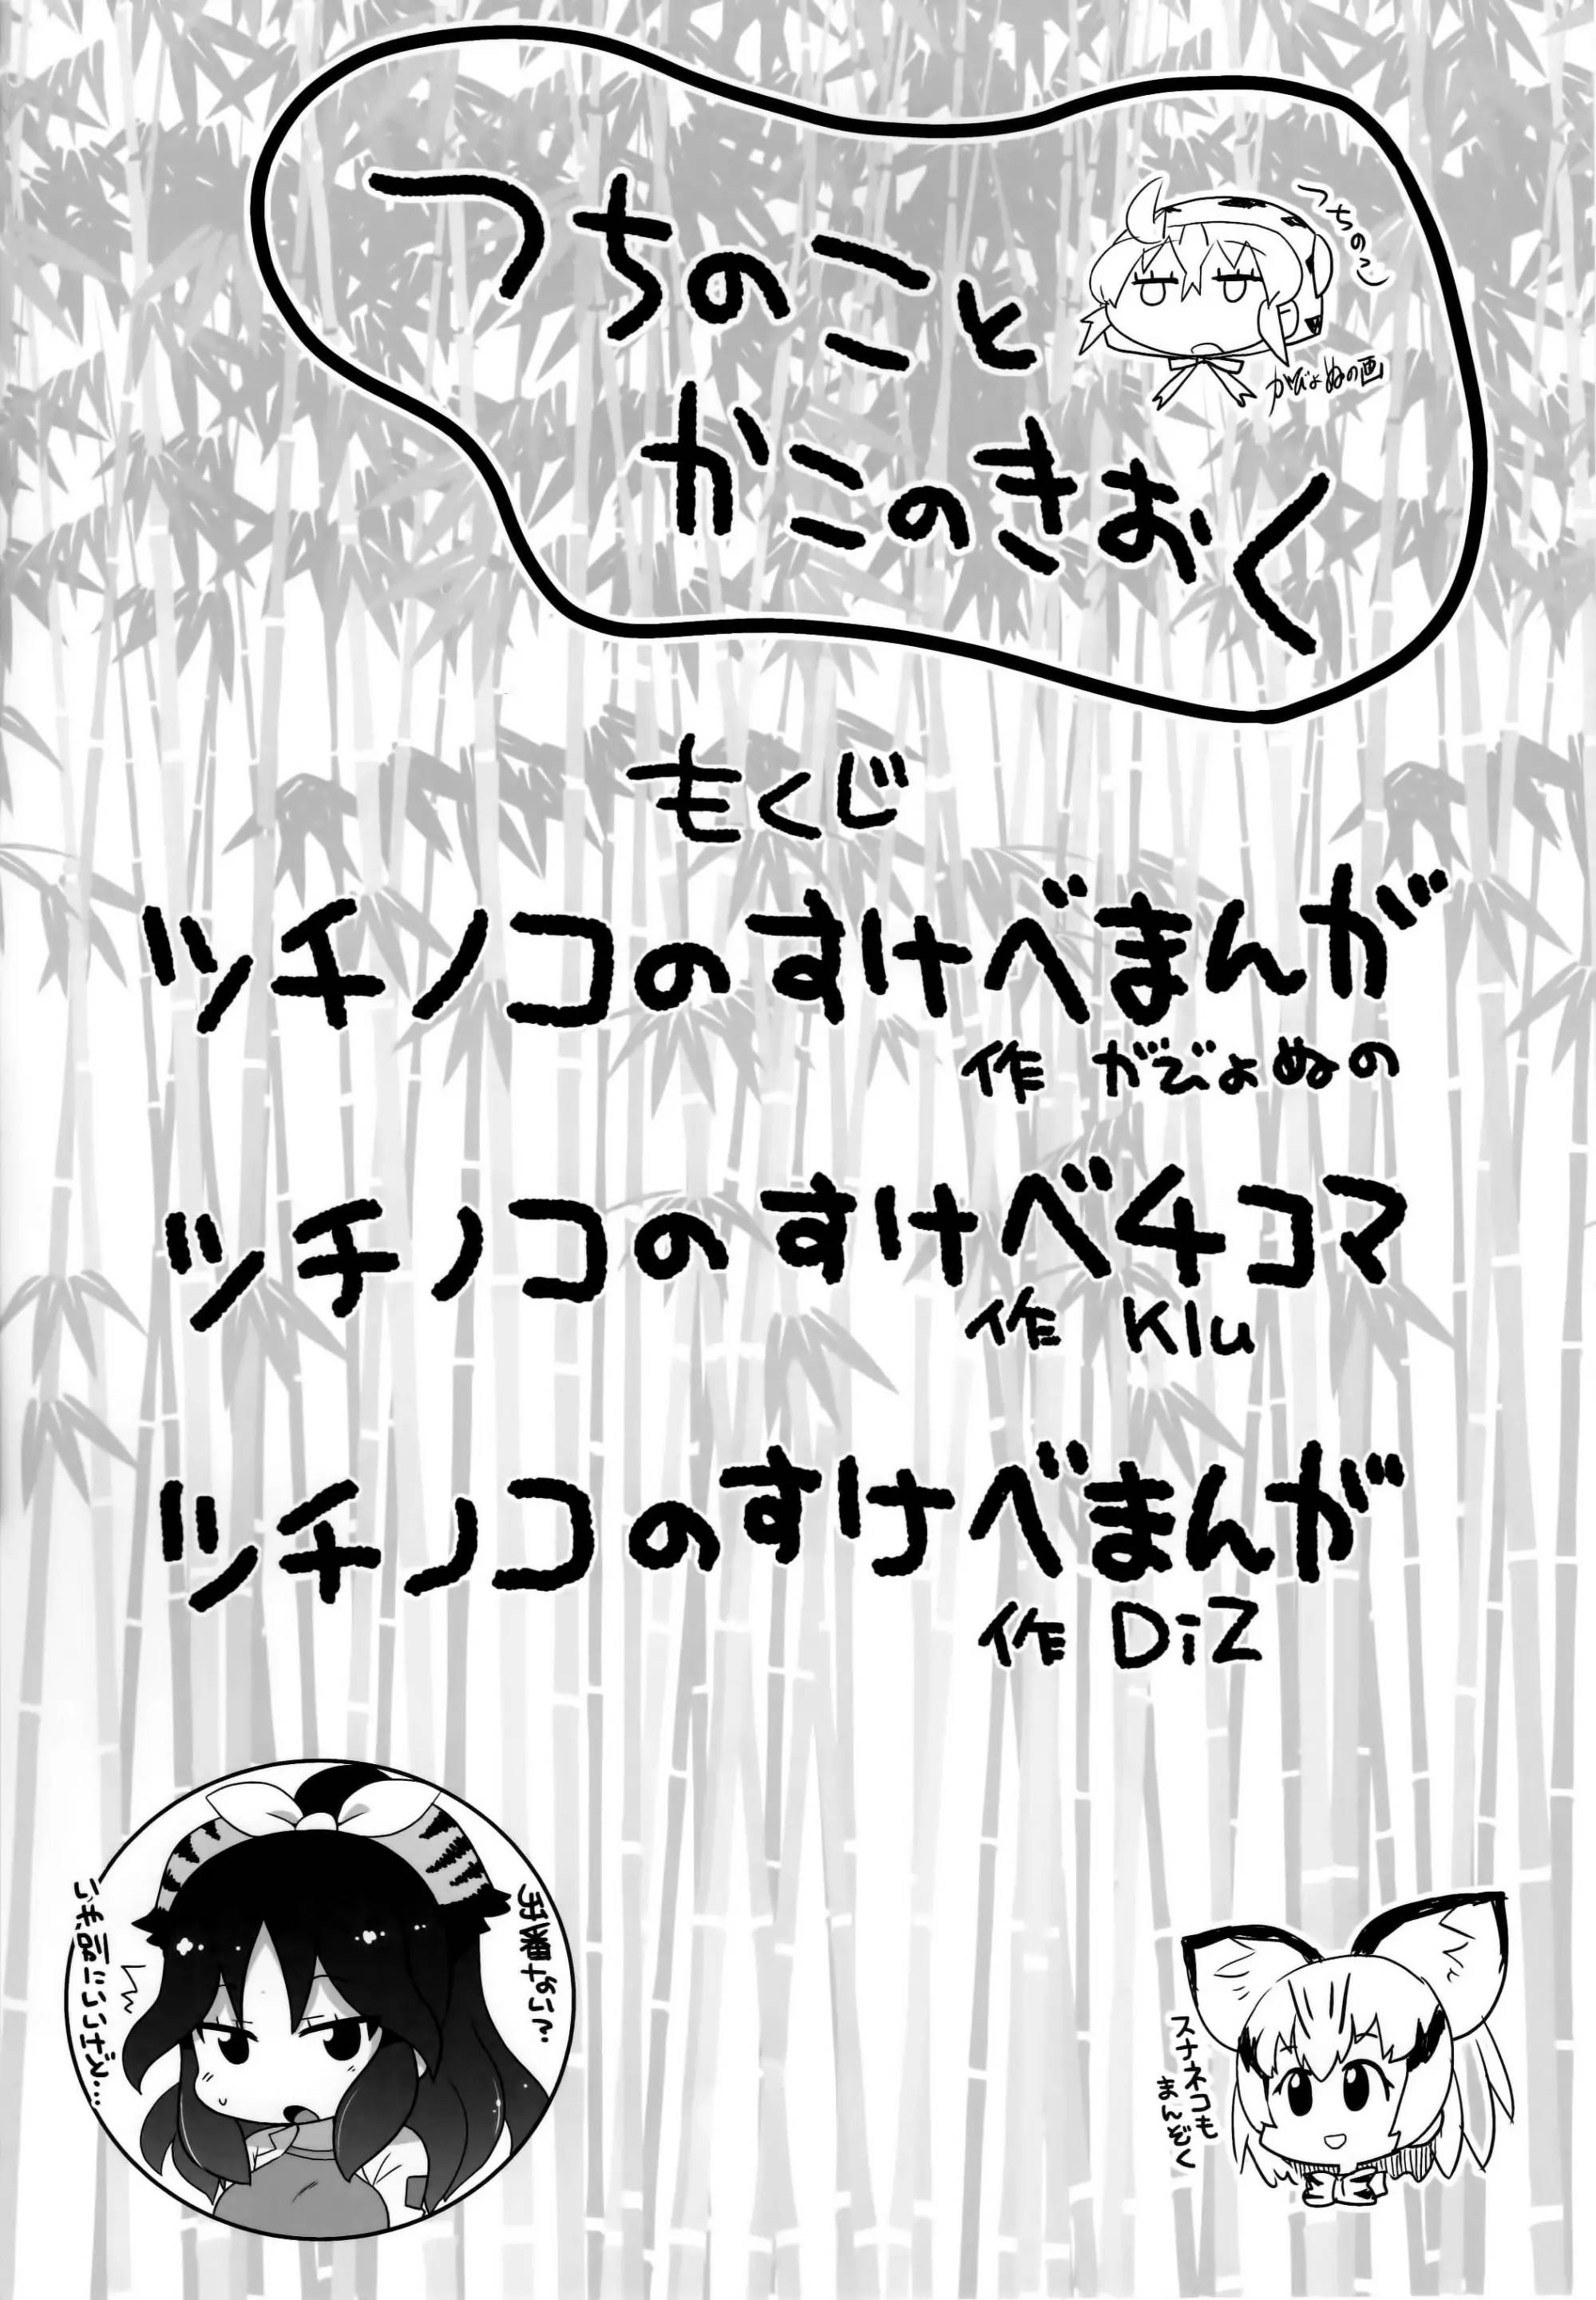 つちのこと
かこのきおく
つちのこ
がびょぬの画
もくじ
ツチノコのすけべまんが
作 がびょぬの
ツチノコのすけべ4コマ
作 Klu
ツチノコのすけべまんが
作 DiZ
出番ない?
いや別にいいけど…
スナネコも
まんぞく